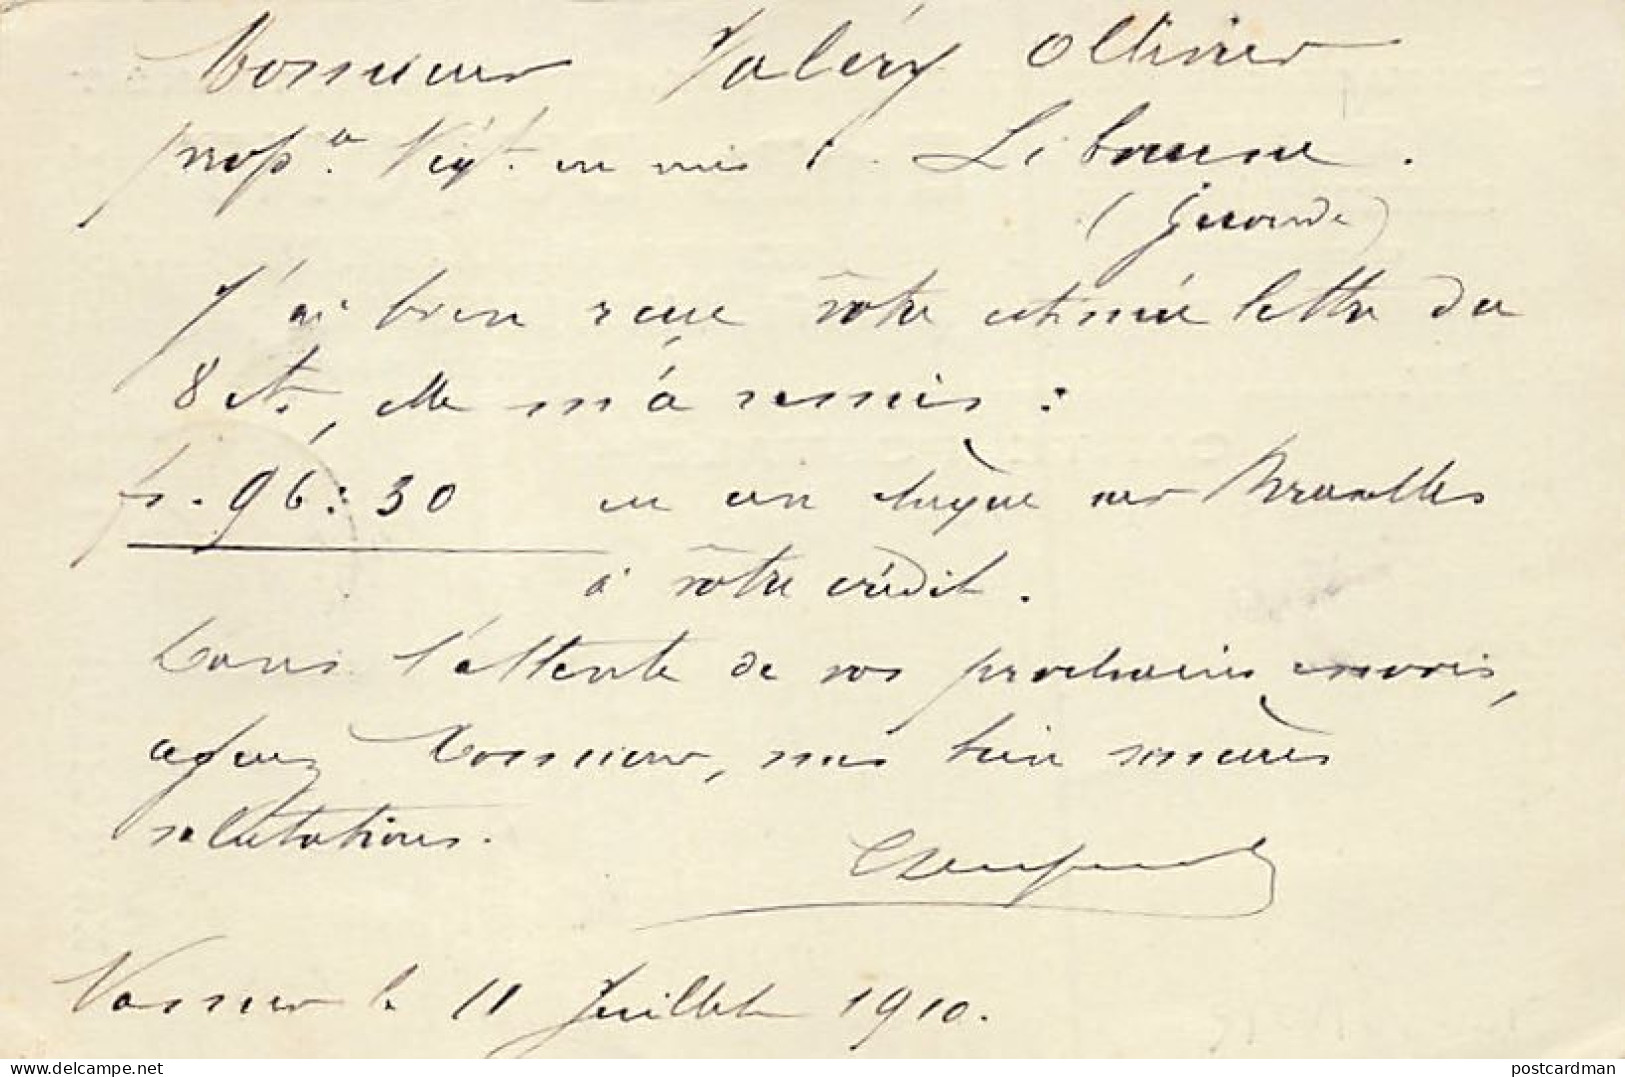 Monsieur Valéry Ollivier
prop.re Négt. en vins Libourne.
(Gironde)
J'ai bien reçue vôtre estimée lettre du
8 ct., elle m'a remis :
fr. 96:30 en un chèque sur Bruxelles
à vôtre crédit.
Dans l'attente de vos prochains envois,
agréez Monsieur, mes bien sincères
salutations.
le 11 Juillet 1910.
delcampe.net
postcardman